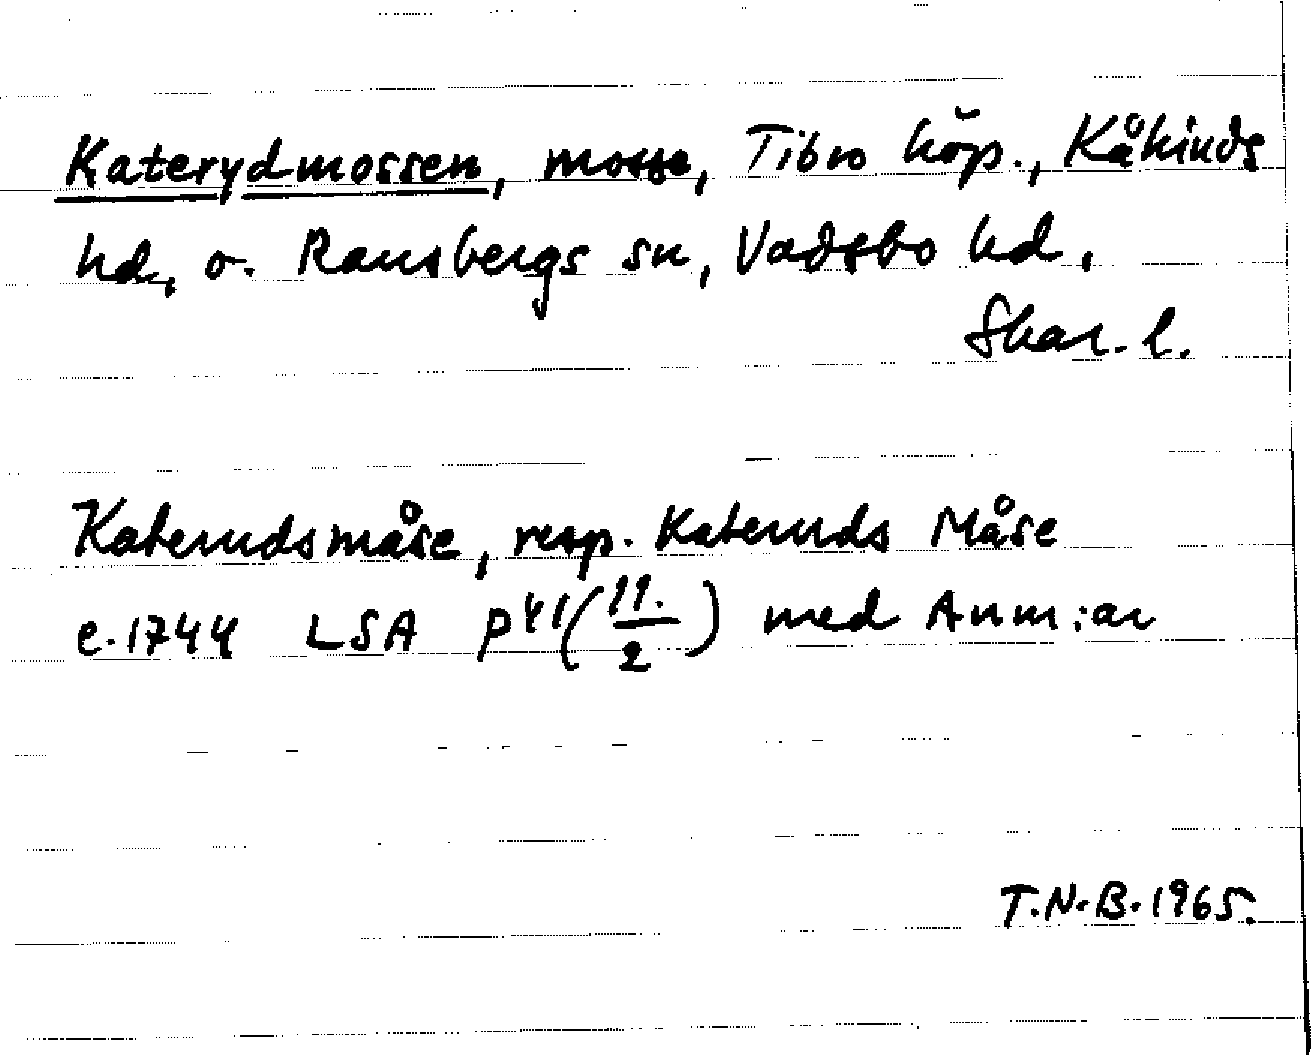 Katerydmossen, mosse, Tibro köp., Kåkinds
hd, o. Ransbergs sn, Vadsbo hd,
Skar. l.
Katerudsmåse, resp. Kateruds Måse
c. 1744 LSA P41(11:/2) med Anm:ar
T.N.B. 1965.